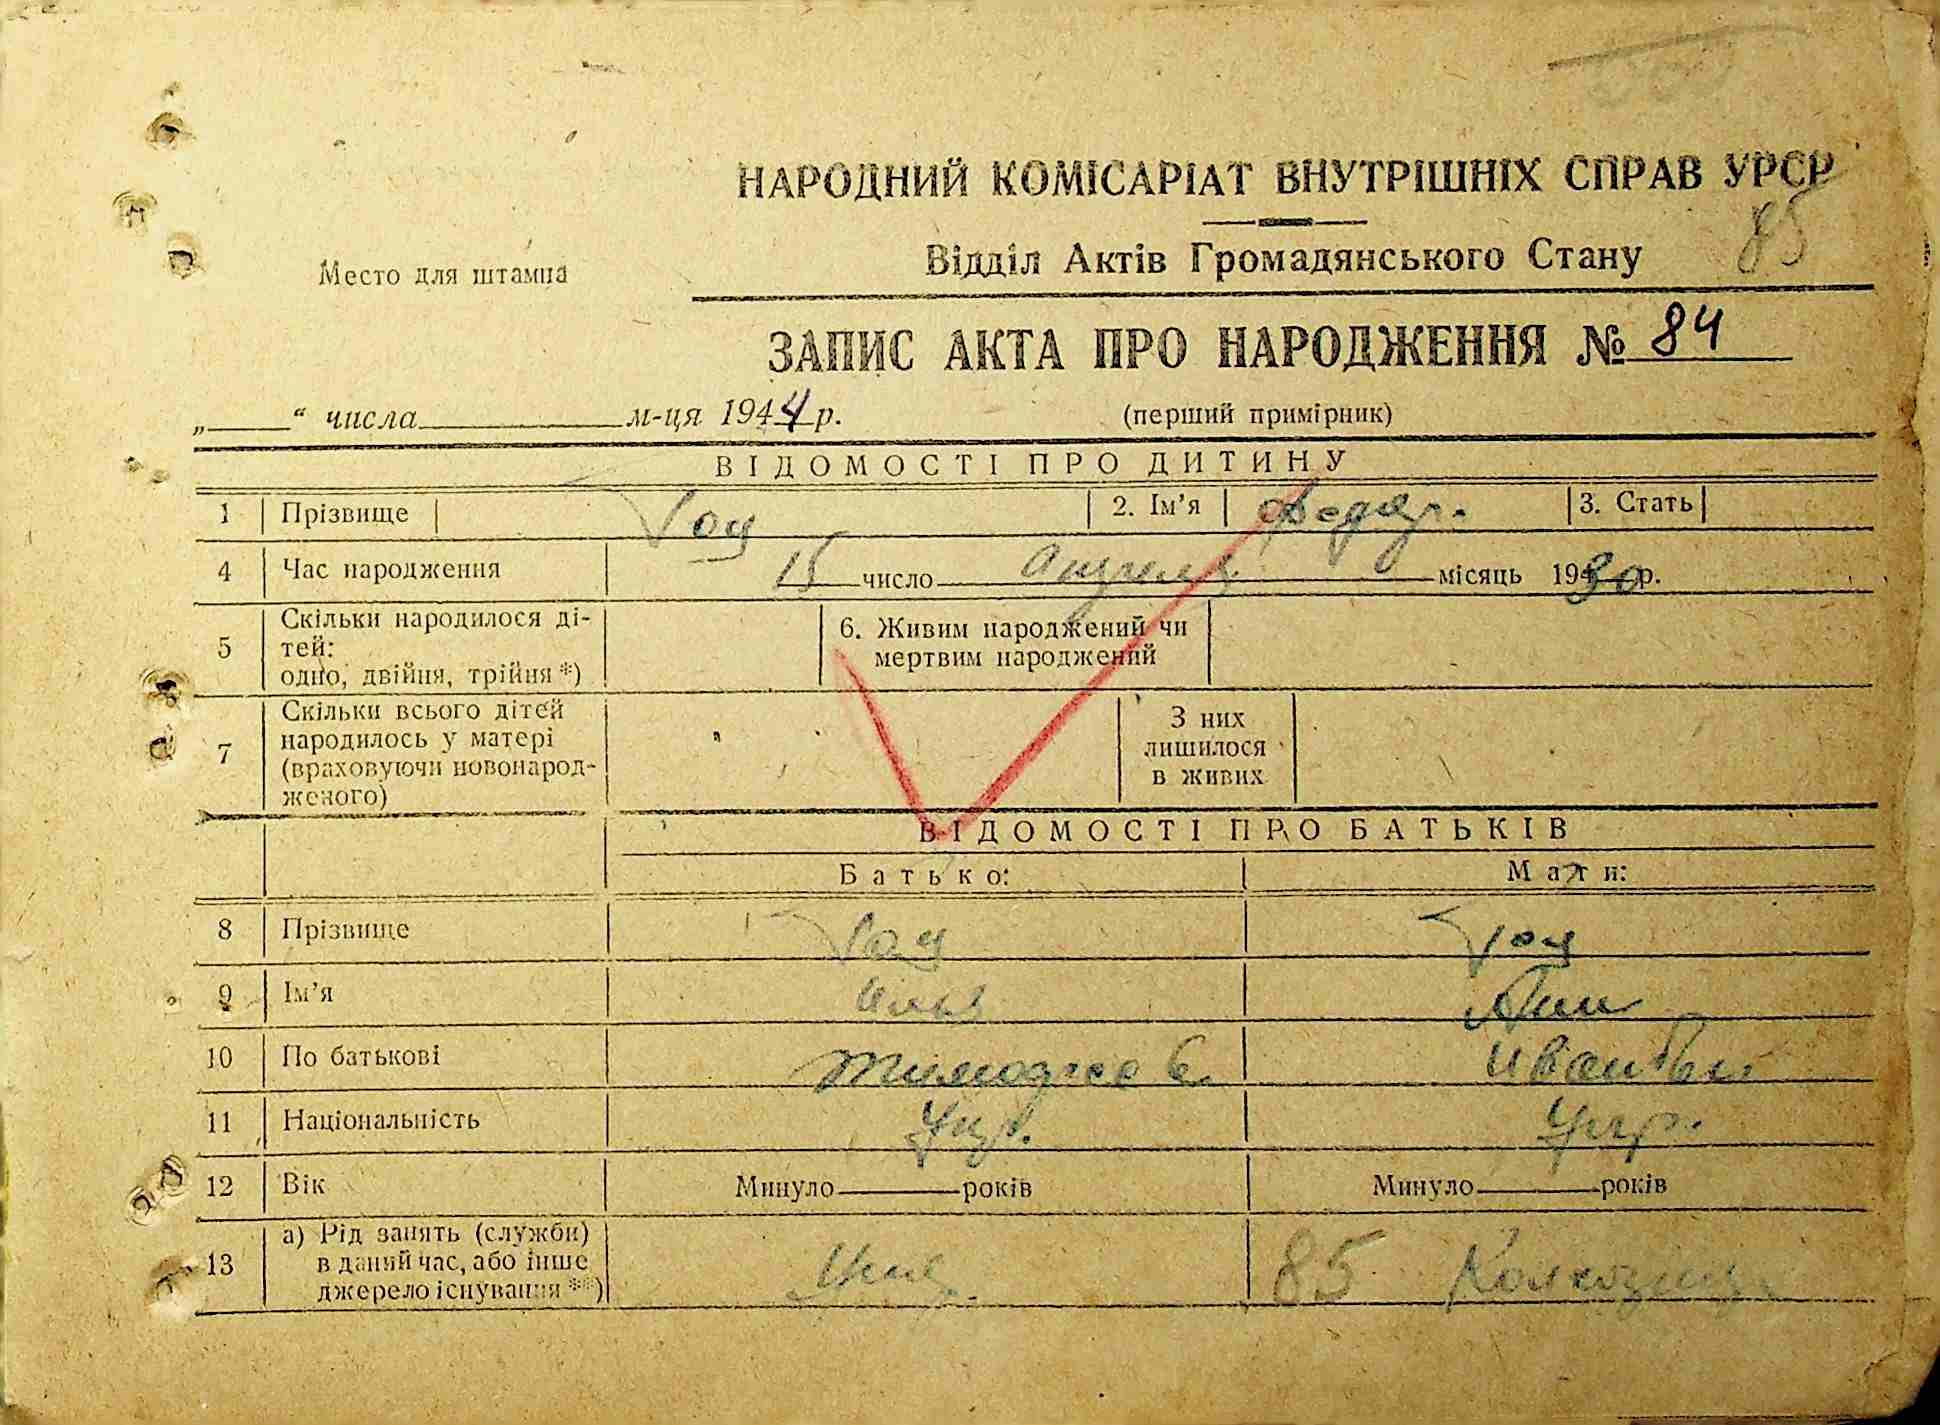 НАРОДНИЙ КОМІСАРІАТ ВНУТРІШНІХ СПРАВ УРСР
85
Відділ Актів Громадянського Стану
Место для штампа
ЗАПИС АКТА ПРО НАРОДЖЕННЯ № 84
„ “ числа м-ця 1944 р.
(перший примірник)
ВІДОМОСТІ ПРО ДИТИНУ
1 Прізвище 2. Ім’я Федор. 3. Стать
4 Час народження 15 число Апреля місяць 1930 р.
5 Скільки народилося ді-
тей:
одно, двійня, трійня *)
6. Живим народжений чи
мертвим народжений
7 Скільки всього дітей
народилось у матері
(враховуючи новонарод-
женого)
З них
лишилося
в живих
ВІДОМОСТІ ПРО БАТЬКІВ
Батько: Мати:
8 Прізвище
9 Ім’я
10 По батькові
11 Національність Укр. Укр.
12 Вік Минуло років Минуло років
13 а) Рід занять (служби)
в даний час, або інше
джерело існування **)
85